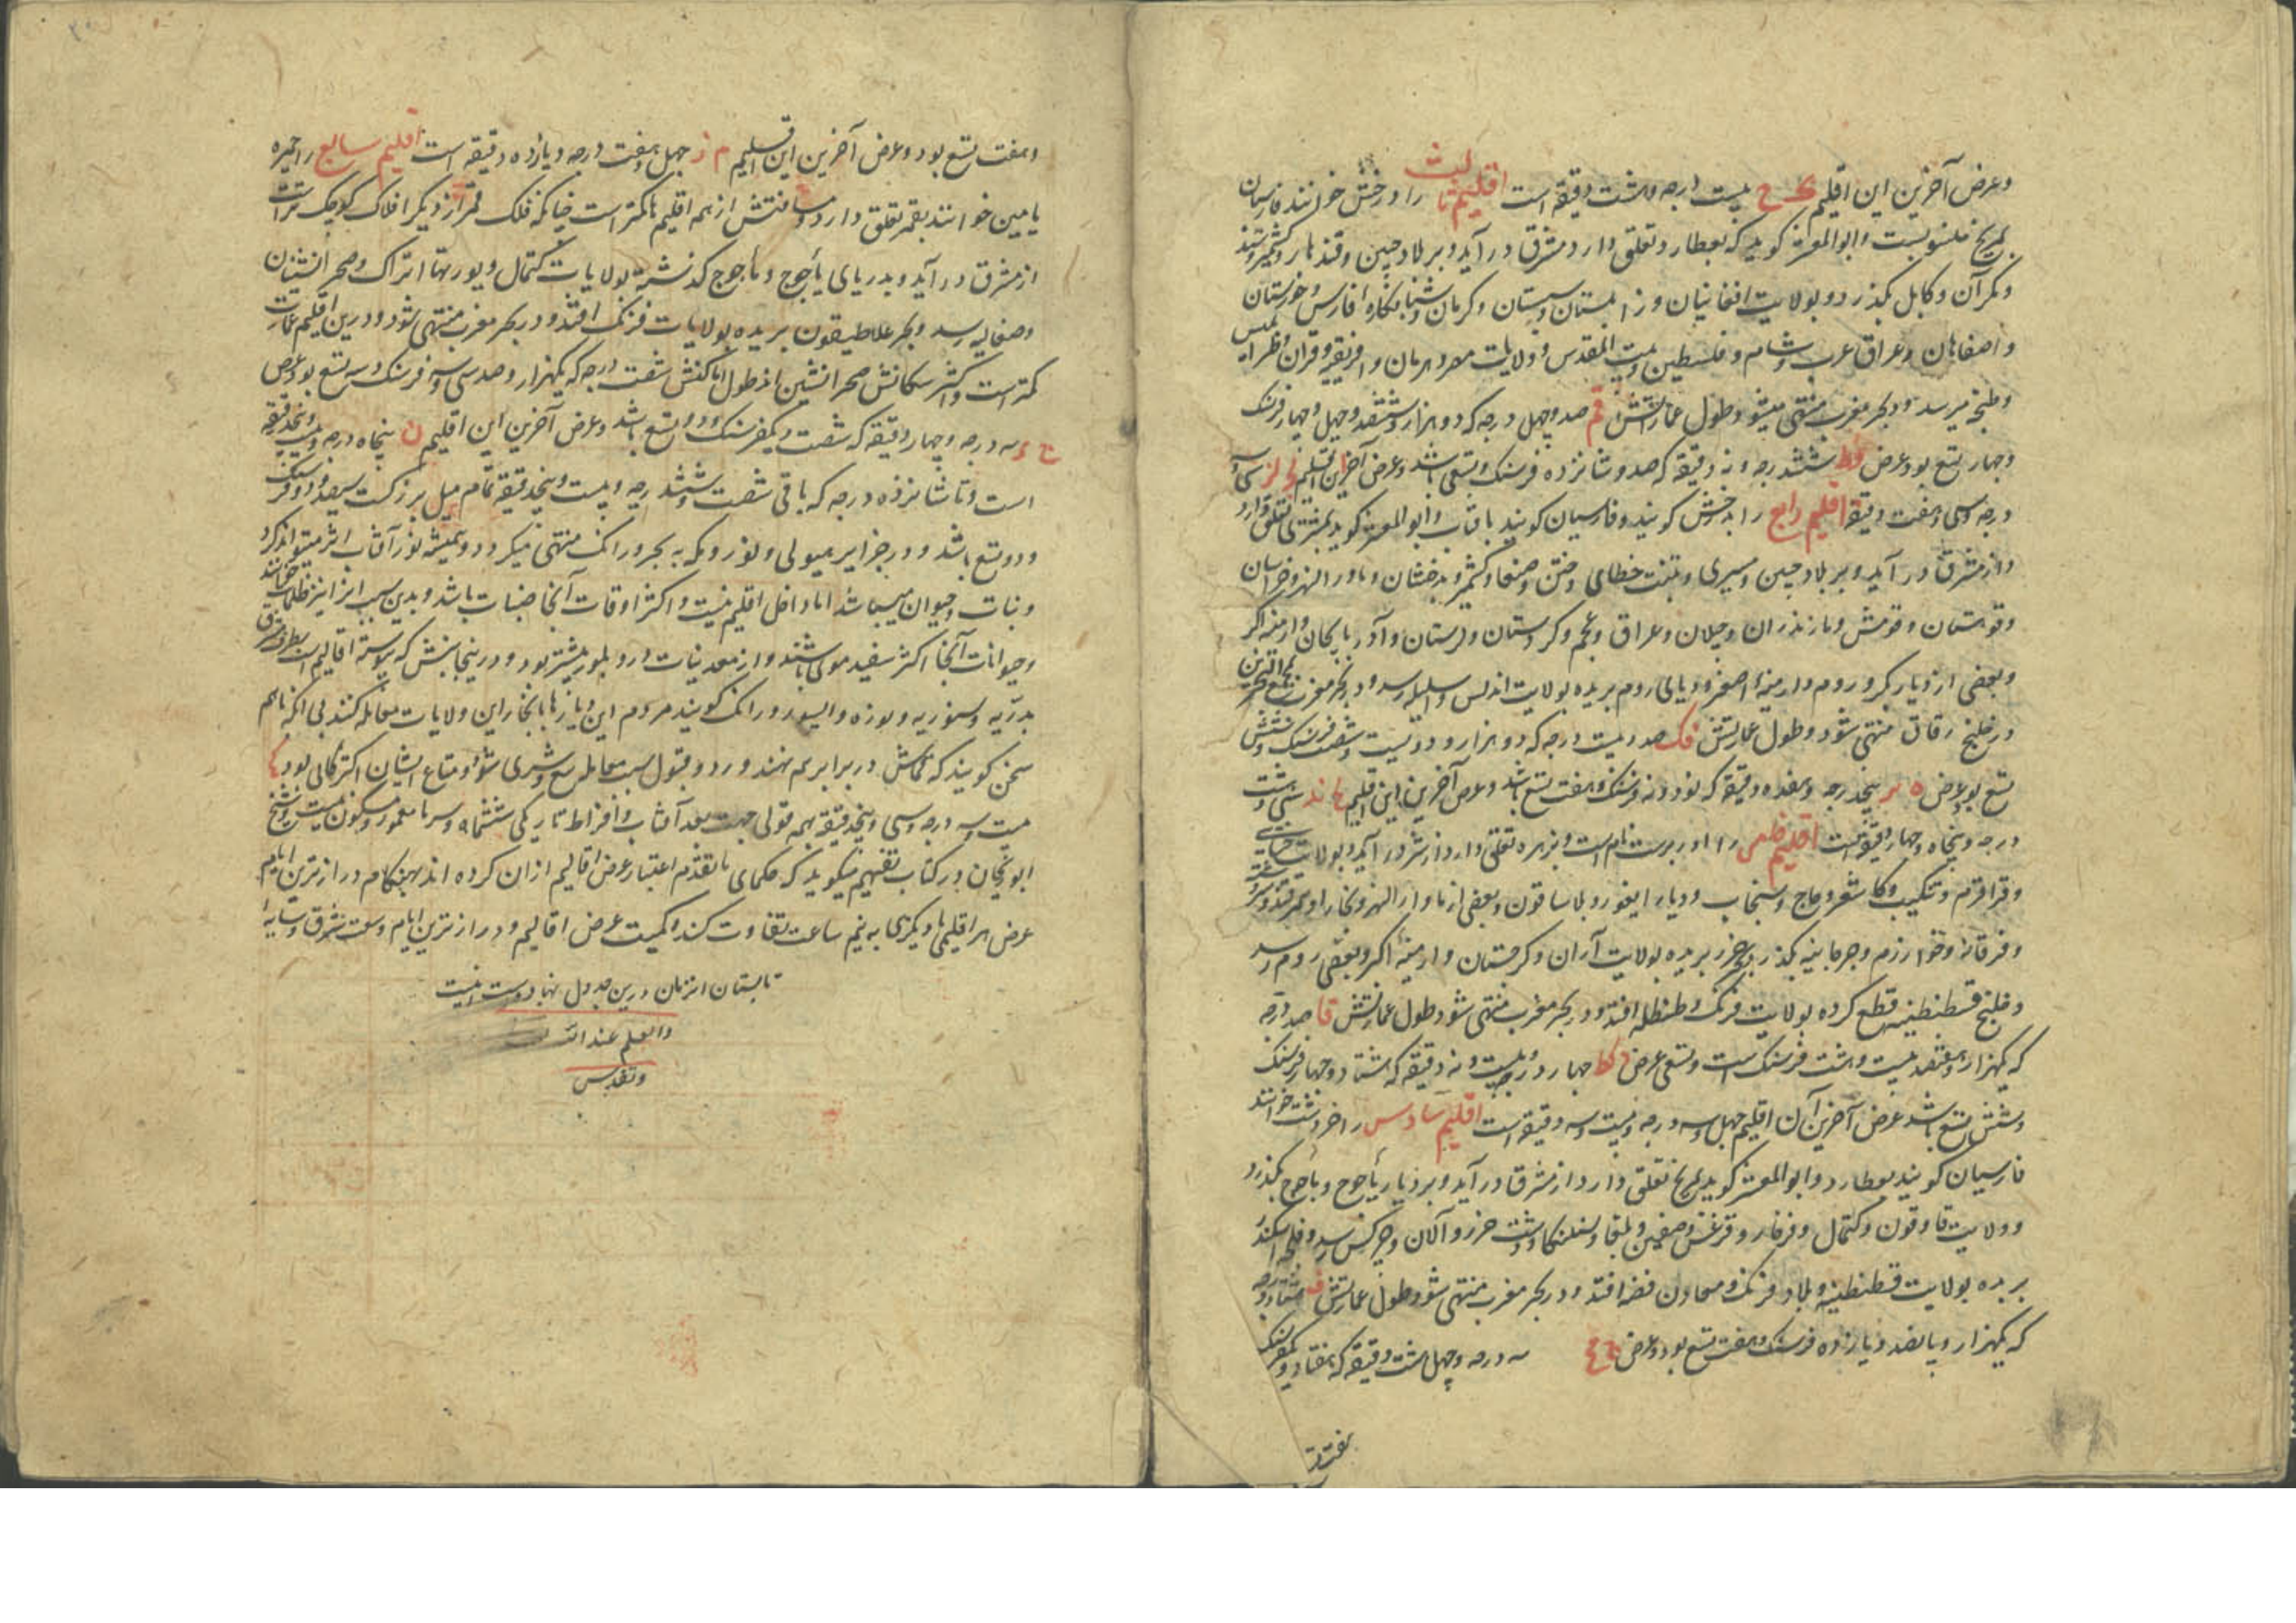 وعرض آخرین این اقلیم کح بیست درجه وهشت دقیقه است اقلیم ثالث را درخش خوانند فارسیان
بمریخ منسوبست وابوالمعشر کوید که بعطارد تعلق دارد ومشرق در آید وبر بلاد چین وقندهار وکشمیر وهند
ومکرآن وکابل بکذرد وبولایت افغانیان وزابلستان وسیستان وکرمان وشبانکاره وفارس وخوزستان
واصفاهان وعراق عرب وشام وفلسطین وبیت المقدس وولایات مصر وهرمان وافریقیه وقران
وطنجه میرسد ودر بحر مغرب منتهی میشود وطول عمارتش قم صد وچهل درجه که دو هزار وششصد وچهل وچهار فرسنک
وچهار تسع بود وعرض شش درجه ونه دقیقه که صد وشانزده فرسنک وتسعی باشد وعرض آخرین اقلیم لج لز سی وسه
درجه وسی وهفت دقیقه اقلیم رابع را بدخش کویند وفارسیان کویند بافتاب وابوالمعشر کوید بمشتری تعلق دارد
واز مشرق در آید وبر بلاد چین ومسیری وتبت خطای وختن وصنعا وکشمیر وبدخشان وماورا النهر وخراسان
وقوهستان وقومش ومازندران وجیلان وعراق وعجم وکردستان ولرستان وآدربایجان وارمنیه اکبر
وبعضی از دیار بکر وروم وارمنیه اصغر ودریای روم بریده بولایت اندلس رسد ودر بحر مغرب مجمع البحرین
در خلیج زقاق منتهی شود وطول عمارتش قک صد وبیست درجه که دو هزار ودویست وشصت فرسنک وشش
تسع بود وعرض ه یز پنجدرجه وهفده دقیقه که نود ونه فرسنک وهفت تسع باشد وعرض آخرین این اقلیم سی وهشت
درجه وپنجاه وچهار دقیقه است اقلیم خامس را اوربرست نام است وبزهره تعلق دارد از مشرق در آید وبولایت
وقراقرم وتنکیب وکاشغر وجاج وسنجاب ودیار ایغور وبلاساقون وبعضی از ماوار النهر وبخارا وسمرقند
وفرقانه وخوارزم وجرجانیه بکذرد وبحر خزر بریده بولایت آران وکرجستان وارمنیه اکبر وبعضی روم رسد
وخلیج قسطنطنیه قطع کرده بولایت فرنک وطنطله افتد ودر بحر مغرب منتهی شود وطول عمارتش قا صد درجه
که یکهزار وهفتصد بیست وهشت فرسنک است وتسعی عرض دکط چهار درجه وبیست ونه دقیقه که هشتاد وچهار فرسنک
وشش تسع باشد عرض آخرین آن اقلیم چهل وسه درجه وبیست وسه دقیقه است اقلیم سادس را خردشت خوانند
فارسیان کویند بعطارد وابوالمعشر کوید بمریخ تعلق دارد از مشرق در آید وبر دیار یأجوج ومأجوج بکذرد
وولایت قاوقون وکتمال وفرفار وقرغش وصغین وبلغار وسلنکا ودشت خزر وآلان وچرکس رسد وخلیج اسکندر
بریده بولایت قسطنطنیه وبلاد فرنک ومعادن فضه افتد ودر بحر مغرب منتهی شود وطول عمارتش ف هشتاد درجه
که یکهزار وپانصد ویازده فرسنک وهفت تسع بود وعرض سه درجه وچهل هشت دقیقه که هفتاد ویکفرسنک
وهفت تسع بود وعرض آخرین این اقلیم م ز چهل وهفت درجه ویازده دقیقه است اقلیم سابع را خمیره
یا مین خوانند بقمر تعلق دارد ومسافتش از همه اقلیم ها کمتر است چنانکه فلک قمر از دیکر افلاک کوچک تر است
از مشرق در آید وبدریای یأجوج ومأجوج کذشته بولایات کتمال ویورتها اتراک وصحرانشینان
وصغالیه رسد وبحر غلاطیقون بریده بولایات فرنک افتد ودر بحر مغرب منتهی شود ودرین اقلیم عمارت
کمتر است واکثر سکانش صحرانشین اند طول اماکنش شصت درجه که یکهزار وصد سی وسه فرسنک وسه تسع بود وعرض
سه درجه وچهار دقیقه که شصت ویکفرسنک ودو تسع باشد وعرض آخرین این اقلیم ن پنجاه درجه وبیست وپنجدقیقه
است وتا شانزده درجه که باقی شصت وشش درجه وبیست وپنجدقیقه تمام میل بزرکست سیصد ودو فرسنک
ودو تسع باشد ودر جزایر میولی ولوزرومکه به بحر ورانک منتهی میکردد وهمیشه نور آفتاب اثر میتواند کرد
ونبات وحیوان میباشد اما داخل اقلیم نیست واکثر اوقات آنجا ضباب باشد وبدین سبب انرا نیز ظلمات خوانند
وحیوانات آنجا اکثر سفید موی باشند واز معدنیات درو بلور بیشتر بود ودرینجا بخش که پیوسته اقالیم است بطرف مشرق
بدریه وسموریه ولوزه والیسور ورانک کویند مردم این دیارها باتجار این ولایات معامله کنند بی انکه باهم
سخن کویند که قماش در برابر هم نهند ورد وقبول سبب معامله بیع وشری شود ومتاع ایشان اکثر کالی بود
بیست وسه درجه وسی وپنجدقیقه بهمه قولی جهت بعد آفتاب وافراط تاریکی ششماه وسرما معمور ومسکون نیست وشیخ
ابو ریحان در کتاب تفهیم میکوید که حکمای ما تقدم اعتبار عرض اقالیم ازان کرده اند بهنکام درازترین ایام
عرض هر اقلیمی با دیکری به نیم ساعت تفاوت کند وکمیت عرض اقالیم ودرازترین ایام وسعت مشرق وسایه
تابستان انزمان درین جدول نهاد واست اینست
والعلم عند الله
وتقدس